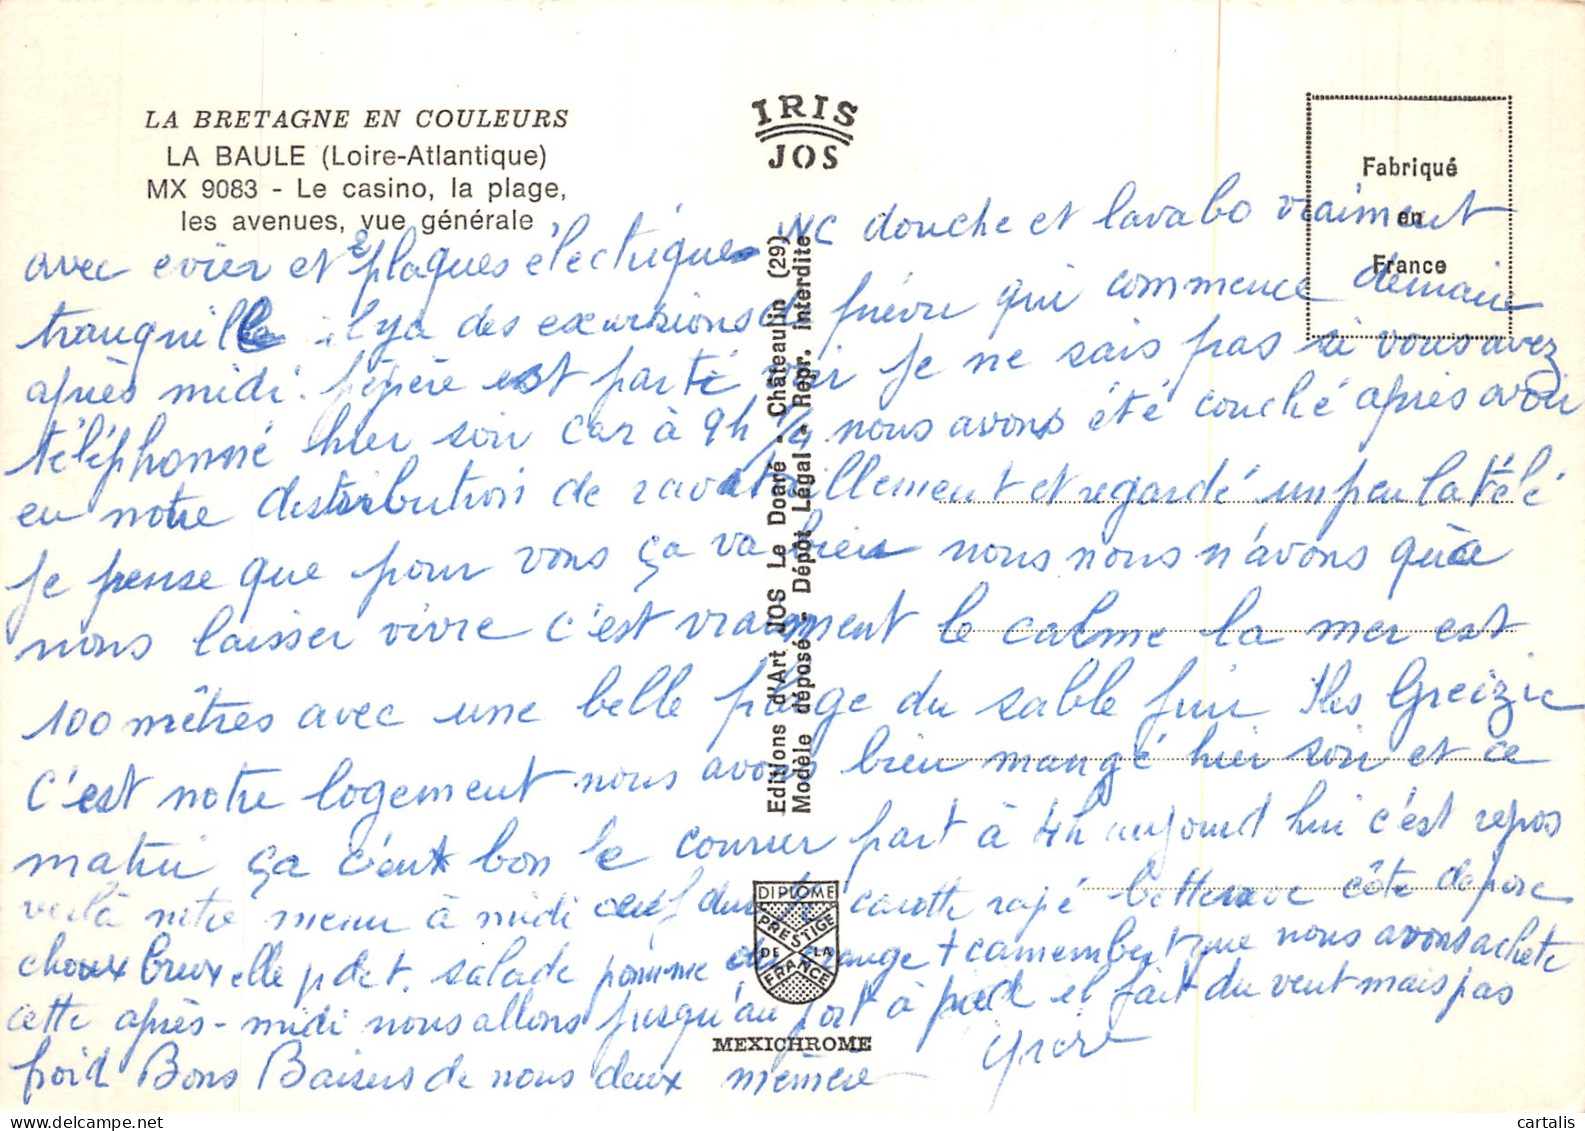 LA BRETAGNE EN COULEURS
LA BAULE (Loire-Atlantique)
MX 9083 - Le casino, la plage,
les avenues, vue générale
IRIS
JOS
Fabriqué
en
France
Editions d'Art JOS Le Doaré - Châteaulin (29)
Modèle déposé - Dépôt Légal - Repr. Interdite
avec evier et 2 plaques électrique WC douche et lavabo vraiment
tranquille il ya des excursions de prévu qui commence demain
après midi. pépère est parti voir je ne sais pas si vous avez
téléphonné hier soir car à 9h 1/4 nous avons été couché après avoir
eu notre distribution de ravitaillement et regardé un peu la télé
je pense que pour vous ça va bien nous nous n'avons qu'à
nous laisser vivre c'est vraiment le calme la mer est
100 mètres avec une belle plage du sable fin
C'est notre logement nous avons bien mangé hier soir et ce
matin ça c'est bon le courrier part à 4h aujourd hui c'est repos
voilà notre menu à midi oeuf dur carotte rapé betterave côte de porc
choux bruxelle p de t. salade pomme orange + camembert que nous avons acheté
cette après-midi nous allons jusqu'au port à pied il fait du vent mais pas
froid Bons Baisers de nous deux mémère
DIPLOME
PRESTIGE
DE LA
FRANCE
MEXICHROME
cartalis